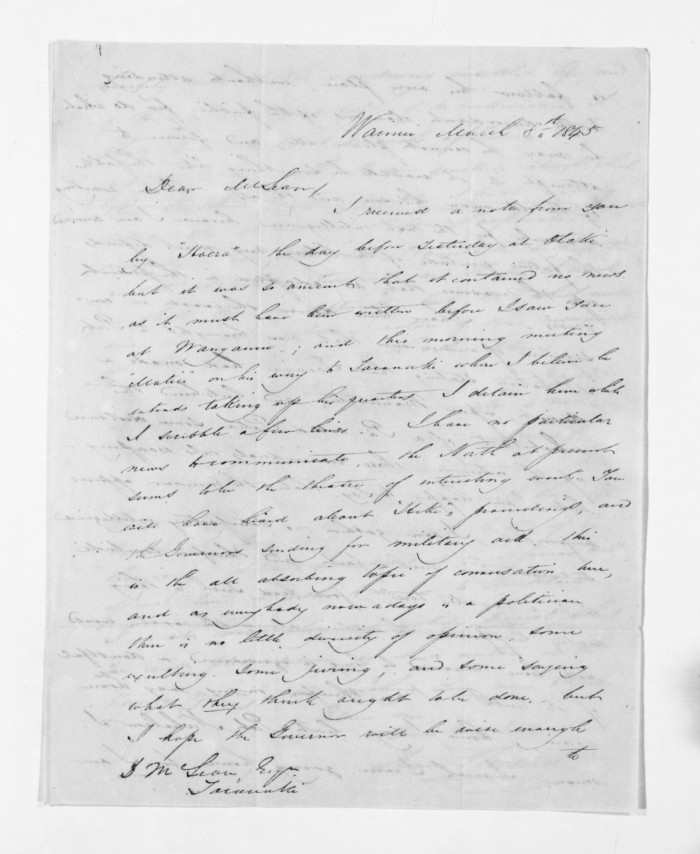 March 8th. 1845
Dear McLean,
I received a note from you
by "Hoera" the day before yesterday at Otaki
but it was so ancient that it contained no news
as it must have been written before I saw you
at Wanganui; and this morning meeting
on his way to Taranaki where I believe he
intends taking up his quarters I detain him while
I scribble a few lines. I have no particular
news to communicate, the North at present
seems to be the theatre of interesting events. You
will have heard about "Heke's" proceedings, and
the Governors sending for military aid. this
is the all absorbing topic of conversation here,
and as everybody now a days is a politician
there is no little diversity of opinion, some
exulting some jeering, and some saying
what they think ought to be done. but
I hope the Governor will be wise enough
to
D McLean, Esqr.
Taranaki